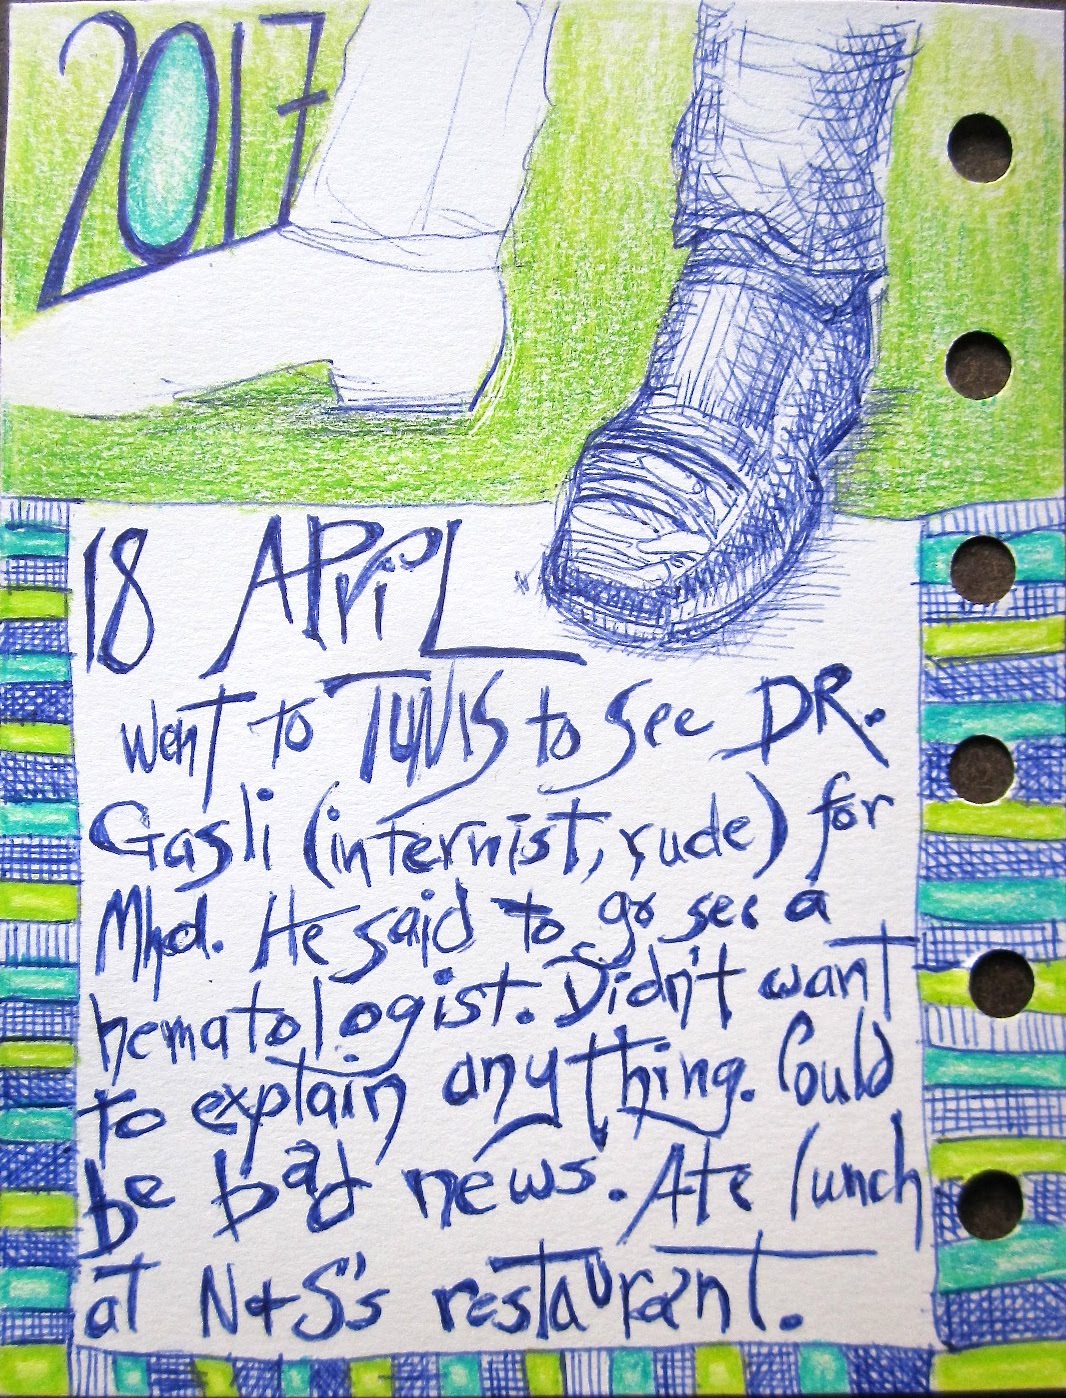 2017
18 APriL
went to TUNIS to see DR.
Gasli (internist, rude) for
Mhd. He said to go see a
hematologist. Didn't want
to explain anything. Could
be bad news. Ate lunch
at N+S's restaurant.